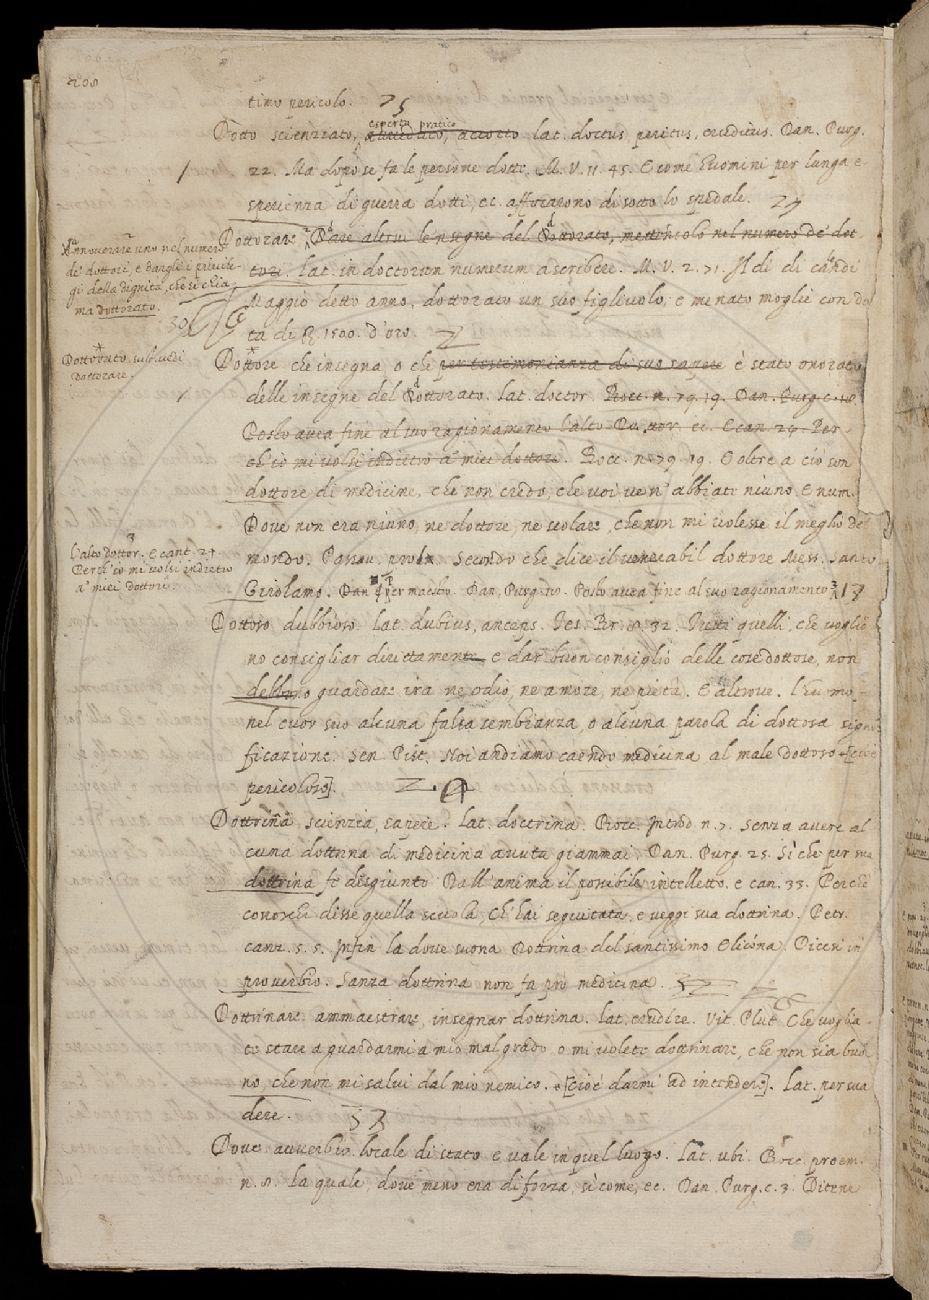 208
timo pericolo. 75
Dotto scienziato, esperto, pratico accorto lat. doctus, peritus, eruditus. Dan. Purg.
22. Ma dopo se fa le persone dotte. M. V. 11. 45. E come huomini per lunga e-
sperienza di guerra dotti, ec. affocarono di sotto lo spedale.
Dottorare Dare altrui le 'nsegne del Dottorato, mettendolo nel numero de' dot
tori. lat. in doctorum numerum ascribere. M. V. 2. 71. Il dì di
Maggio detto anno, dottorato un suo figliuolo, e menato moglie con do
ta di 1500. d'oro.
Annoverare uno nel numero
de' dottori, e dargli i privile-
gi della dignità, che si chia
ma dottorato.
30
Dottorato, sust. vedi
dottorare.
Dottore che insegna, o che per testimonianza di suo sapere è stato onorato
delle insegne del Dottorato. lat. doctor. Bocc. n. 79. 19. Dan. Purg. c. 18.
Posto avea fine al suo ragionamento l'alto Dottor. ec. E can. 24. Per
ch'io mi volsi indietro a' miei dottore. Bocc. n. 79. 19. E oltre a ciò son
dottore di medicine, che non credo, che voi ve n'abbiate niuno E num.
Dove non era niuno, ne dottore, ne scolare, che non mi volesse il meglio del
mondo. Passav. prolm. Secondo che dice il venerabil dottore Mess. Santo
Girolamo. Dan per maestro. Dan. Purg. 18. Posto avea fine al suo ragionamento
3
l'alto dottor. E cant. 24.
Perch'io mi volsi indietro
a' miei dottore.
Dottoso dubbioso. lat. dubius, anceps. Tes. Br. 8. 32. Tutti quelli, che voglio
no consigliar dirittamente e dar buon consiglio delle cose dottose, non
debbono guardare ira ne odio, ne amore, ne pietà. E altrove. l'huomo
nel cuor suo alcuna falsa sembianza, o alcuna parola di dottosa signi
ficazione. Sen. Pist. Noi andiamo caendo medicina al male dottoso [cioè
pericoloso].
Dottrina scienzia, sapere. lat. doctrina. Bocc. Introd n. 7. senza avere al
cuna dottrina di medicina avuta giammai. Dan. Purg. 25. Sì che per sua
dottrina fe disgiunto Dall'anima il possibile intelletto. e can. 33. Perchè
conoschi disse quella scuola, Ch'hai seguitata, e veggi sua dottrina. Petr.
canz. 5. 5. Infin la dove suona Dottrina del santissimo Elicona. Dicesi in
proverbio. Sanza dottrina non fa pro medicina.
Dottrinare ammaestrare, insegnar dottrina. lat. erudire. Vit. Plut. Che voglia-
te stare a guardarmi a mio mal grado o mi volete dottrinare, che non sia buo
no, che non mi salvi dal mio nemico. [cioè darmi ad intendere]. lat. persua
dere. 53
Dove avverbio. locale di stato e vale in quel luogo. lat. ubi. Bocc. proem.
n. 8. la quale dove meno era di forza, sì come, ec. Dan. Purg. c. 3. Ditene